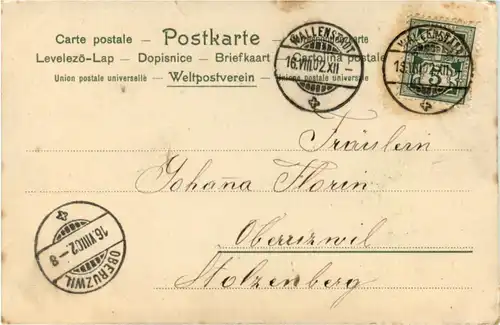 Carte postale – Postkarte –
Levelezö-Lap – Dopisnice – Briefkaart – Cartolina postale
Union postale universelle – Weltpostverein – Unione postale universale
WALLENSTADT
16.VIII.02.XII
WALLENSTADT
5
Fräulein
Johan̄a Florin
Oberuzwil
Stolzenberg
16.VIII.02.-8
OBERUZWIL